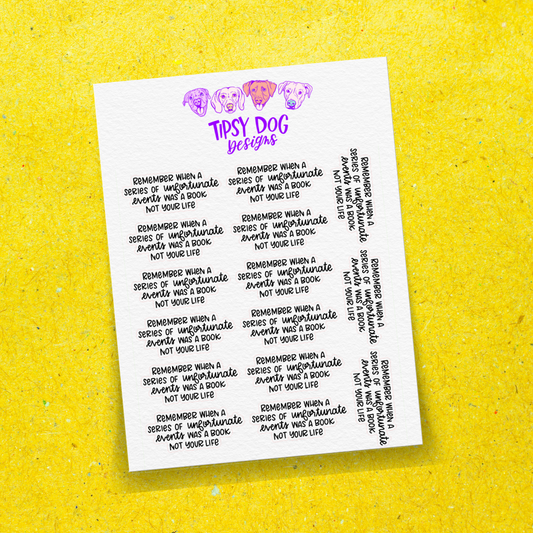 TIPSY DOG
Designs
REMEMBER WHEN A
SERIES OF unfortunate
events WAS A BOOK
NOT YOUR LIFE
REMEMBER WHEN A
SERIES OF unfortunate
events WAS A BOOK
NOT YOUR LIFE
REMEMBER WHEN A
SERIES OF unfortunate
events WAS A BOOK
NOT YOUR LIFE
REMEMBER WHEN A
SERIES OF unfortunate
events WAS A BOOK
NOT YOUR LIFE
REMEMBER WHEN A
SERIES OF unfortunate
events WAS A BOOK
NOT YOUR LIFE
REMEMBER WHEN A
SERIES OF unfortunate
events WAS A BOOK
NOT YOUR LIFE
REMEMBER WHEN A
SERIES OF unfortunate
events WAS A BOOK
NOT YOUR LIFE
REMEMBER WHEN A
SERIES OF unfortunate
events WAS A BOOK
NOT YOUR LIFE
REMEMBER WHEN A
SERIES OF unfortunate
events WAS A BOOK
NOT YOUR LIFE
REMEMBER WHEN A
SERIES OF unfortunate
events WAS A BOOK
NOT YOUR LIFE
REMEMBER WHEN A
SERIES OF unfortunate
events WAS A BOOK
NOT YOUR LIFE
REMEMBER WHEN A
SERIES OF unfortunate
events WAS A BOOK
NOT YOUR LIFE
REMEMBER WHEN A
SERIES OF unfortunate
events WAS A BOOK
NOT YOUR LIFE
REMEMBER WHEN A
SERIES OF unfortunate
events WAS A BOOK
NOT YOUR LIFE
REMEMBER WHEN A
SERIES OF unfortunate
events WAS A BOOK
NOT YOUR LIFE